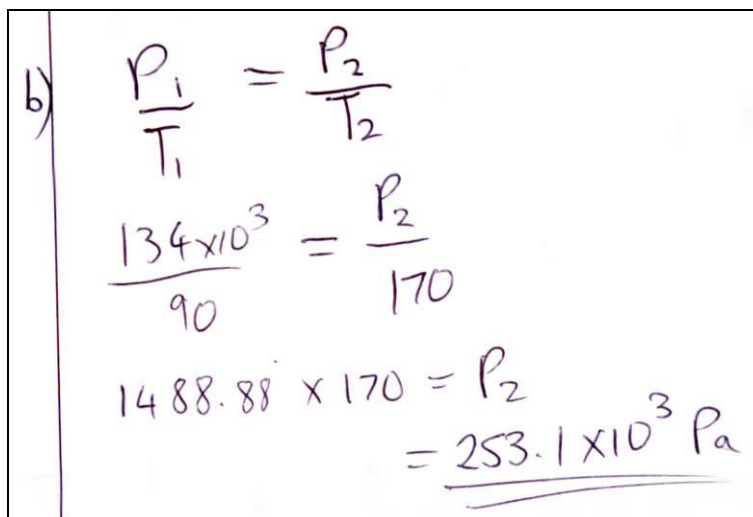 b) P₁/T₁ = P₂/T₂
134×10³/90 = P₂/170
1488.88̇ × 170 = P₂
= 253.1×10³ Pa